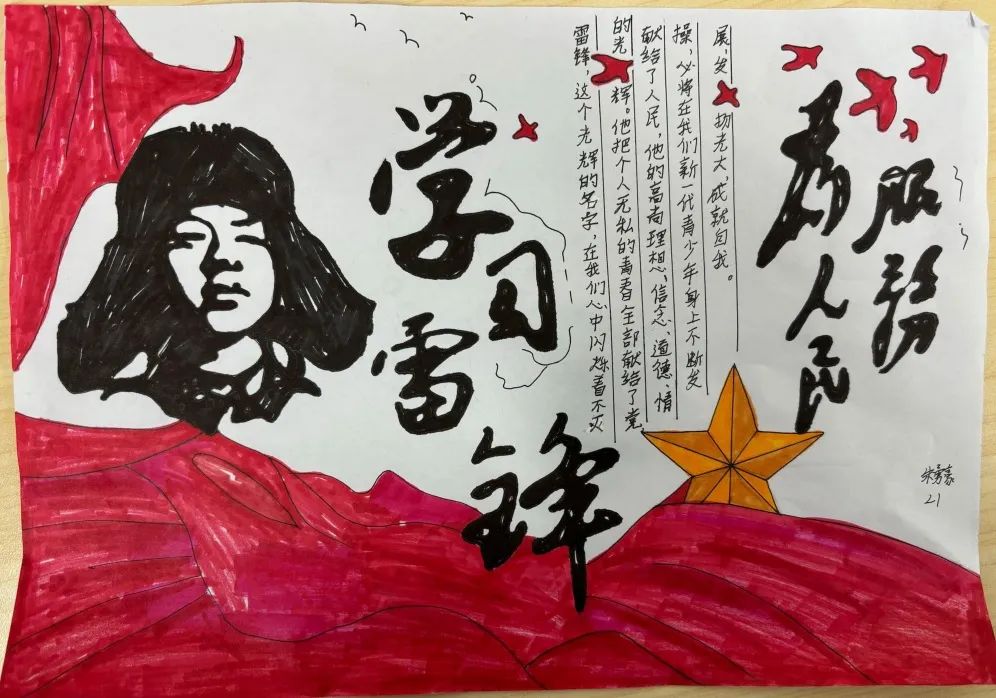 学习
雷锋
雷锋，这个光辉的名字，在我们心中闪烁着不灭
的光辉。他把个人无私的青春全部献给了党
献给了人民，他的高尚理想、信念、道德、情
操，必将在我们新一代青少年身上不断发
展，发扬光大，成就自我。
為人民
服務
21